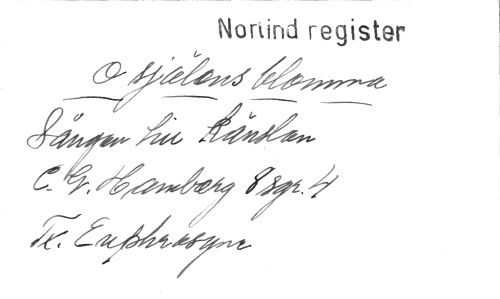 Norlind register
O själens blomma
Sången till Känslan
C. G. Hamberg 8 sgr. 4
Tx. Euphrosyne